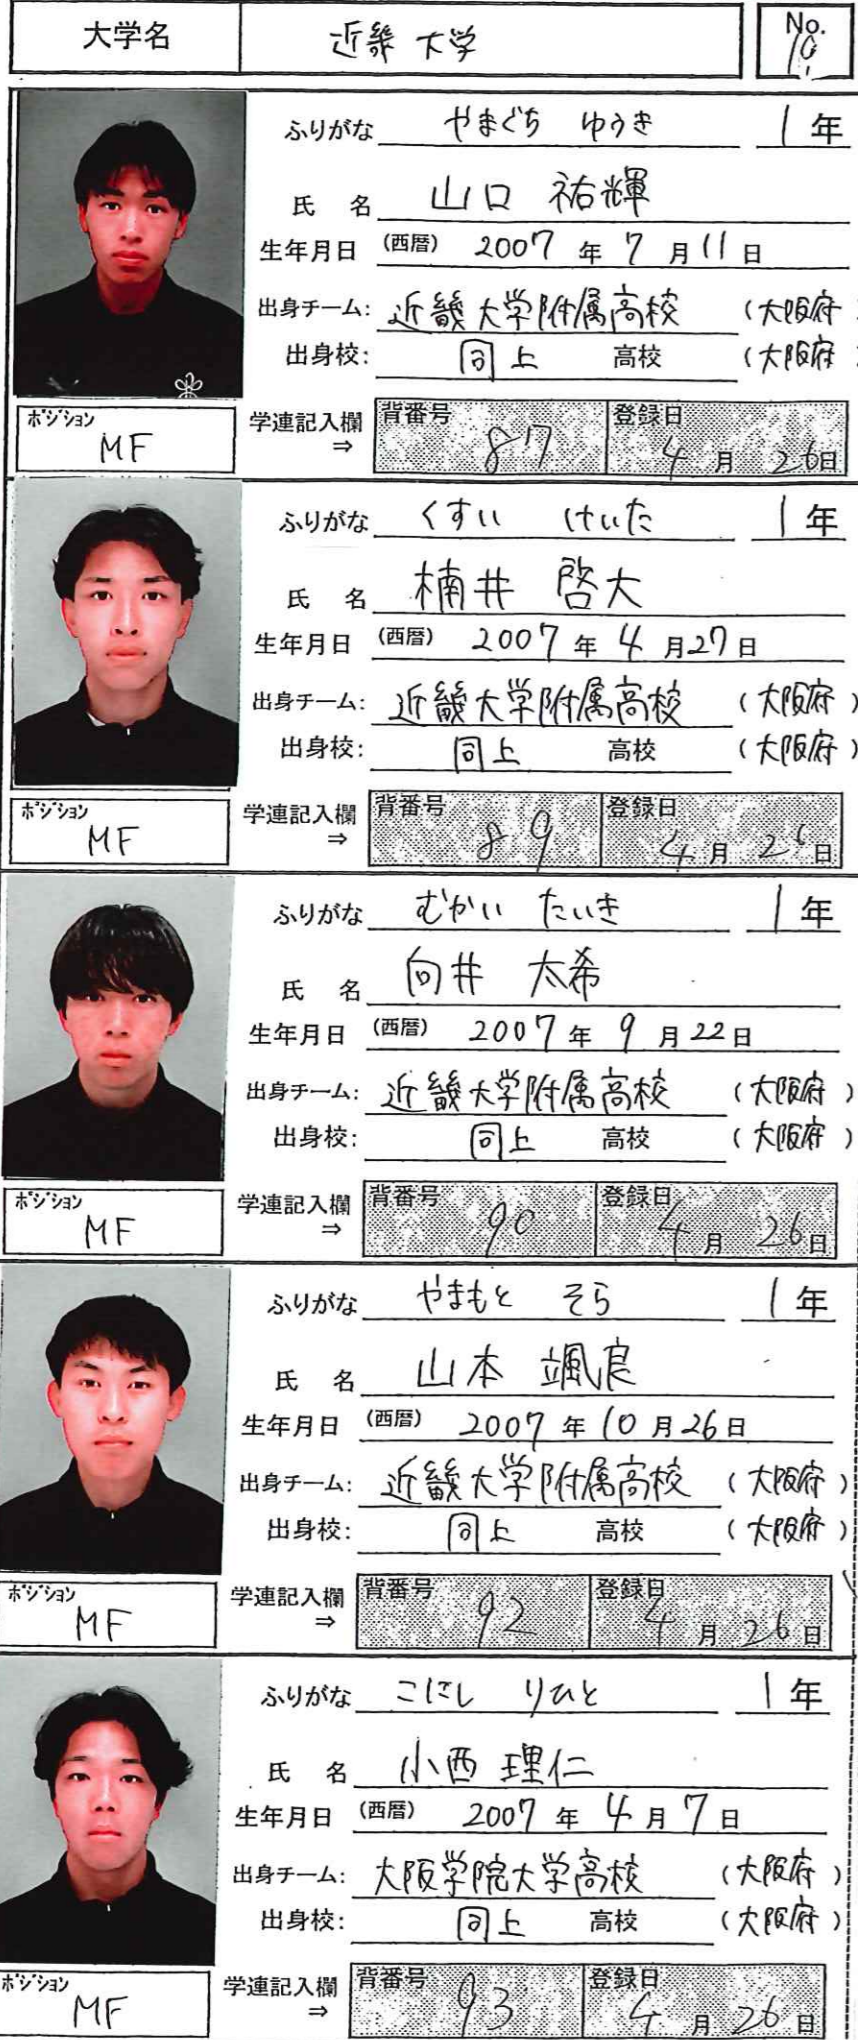 大学名 近畿大学 No. 10
ふりがな やまぐち ゆうき 1年
氏 名 山口 祐輝
生年月日 (西暦) 2007 年 7 月 11 日
出身チーム: 近畿大学附属高校 (大阪府
出身校: 同上 高校 (大阪府
ポジション MF 学連記入欄 ⇒ 背番号 87 登録日 4月 26日
ふりがな くすい けいた 1年
氏 名 楠井 啓太
生年月日 (西暦) 2007 年 4 月 27 日
出身チーム: 近畿大学附属高校 (大阪府)
出身校: 同上 高校 (大阪府)
ポジション MF 学連記入欄 ⇒ 背番号 89 登録日 4月 26日
ふりがな むかい たいき 1年
氏 名 向井 太希
生年月日 (西暦) 2007 年 9 月 22 日
出身チーム: 近畿大学附属高校 (大阪府)
出身校: 同上 高校 (大阪府)
ポジション MF 学連記入欄 ⇒ 背番号 90 登録日 4月 26日
ふりがな やまもと そら 1年
氏 名 山本 颯良
生年月日 (西暦) 2007 年 10 月 26 日
出身チーム: 近畿大学附属高校 (大阪府)
出身校: 同上 高校 (大阪府)
ポジション MF 学連記入欄 ⇒ 背番号 92 登録日 4月 26日
ふりがな こにし りひと 1年
氏 名 小西 理仁
生年月日 (西暦) 2007 年 4 月 7 日
出身チーム: 大阪学院大学高校 (大阪府)
出身校: 同上 高校 (大阪府)
ポジション MF 学連記入欄 ⇒ 背番号 93 登録日 4月 26日